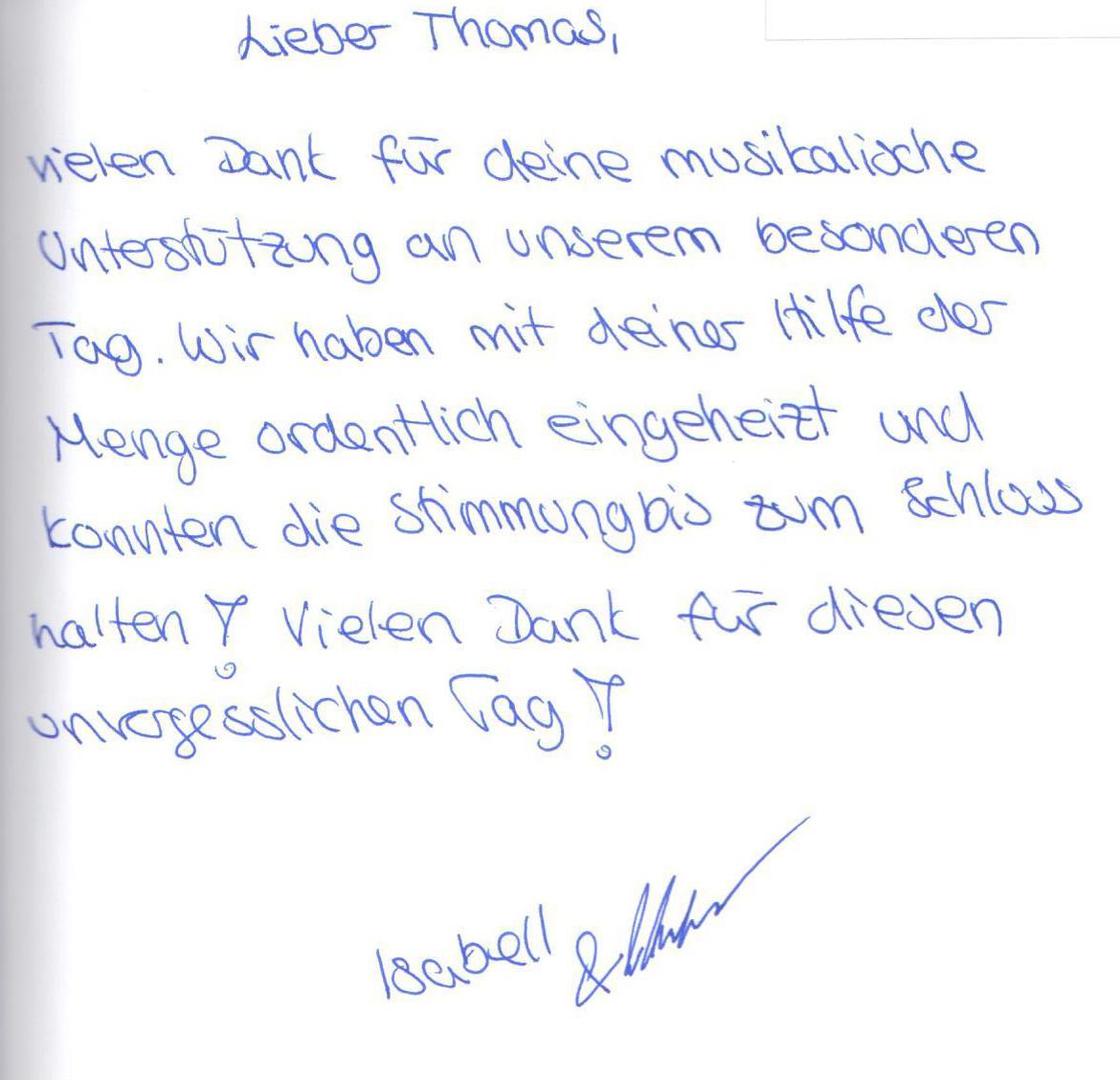 Lieber Thomas,
vielen Dank für deine musikalische
Unterstützung an unserem besonderen
Tag. Wir haben mit deiner Hilfe der
Menge ordentlich eingeheizt und
konnten die Stimmung bis zum Schluss
halten! Vielen Dank für diesen
unvergesslichen Tag!
Isabell &